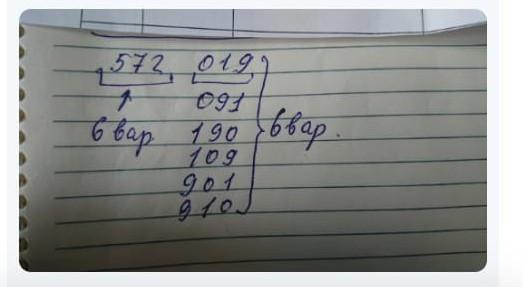 572 019
091
6 вар 190 6 вар.
109
901
910